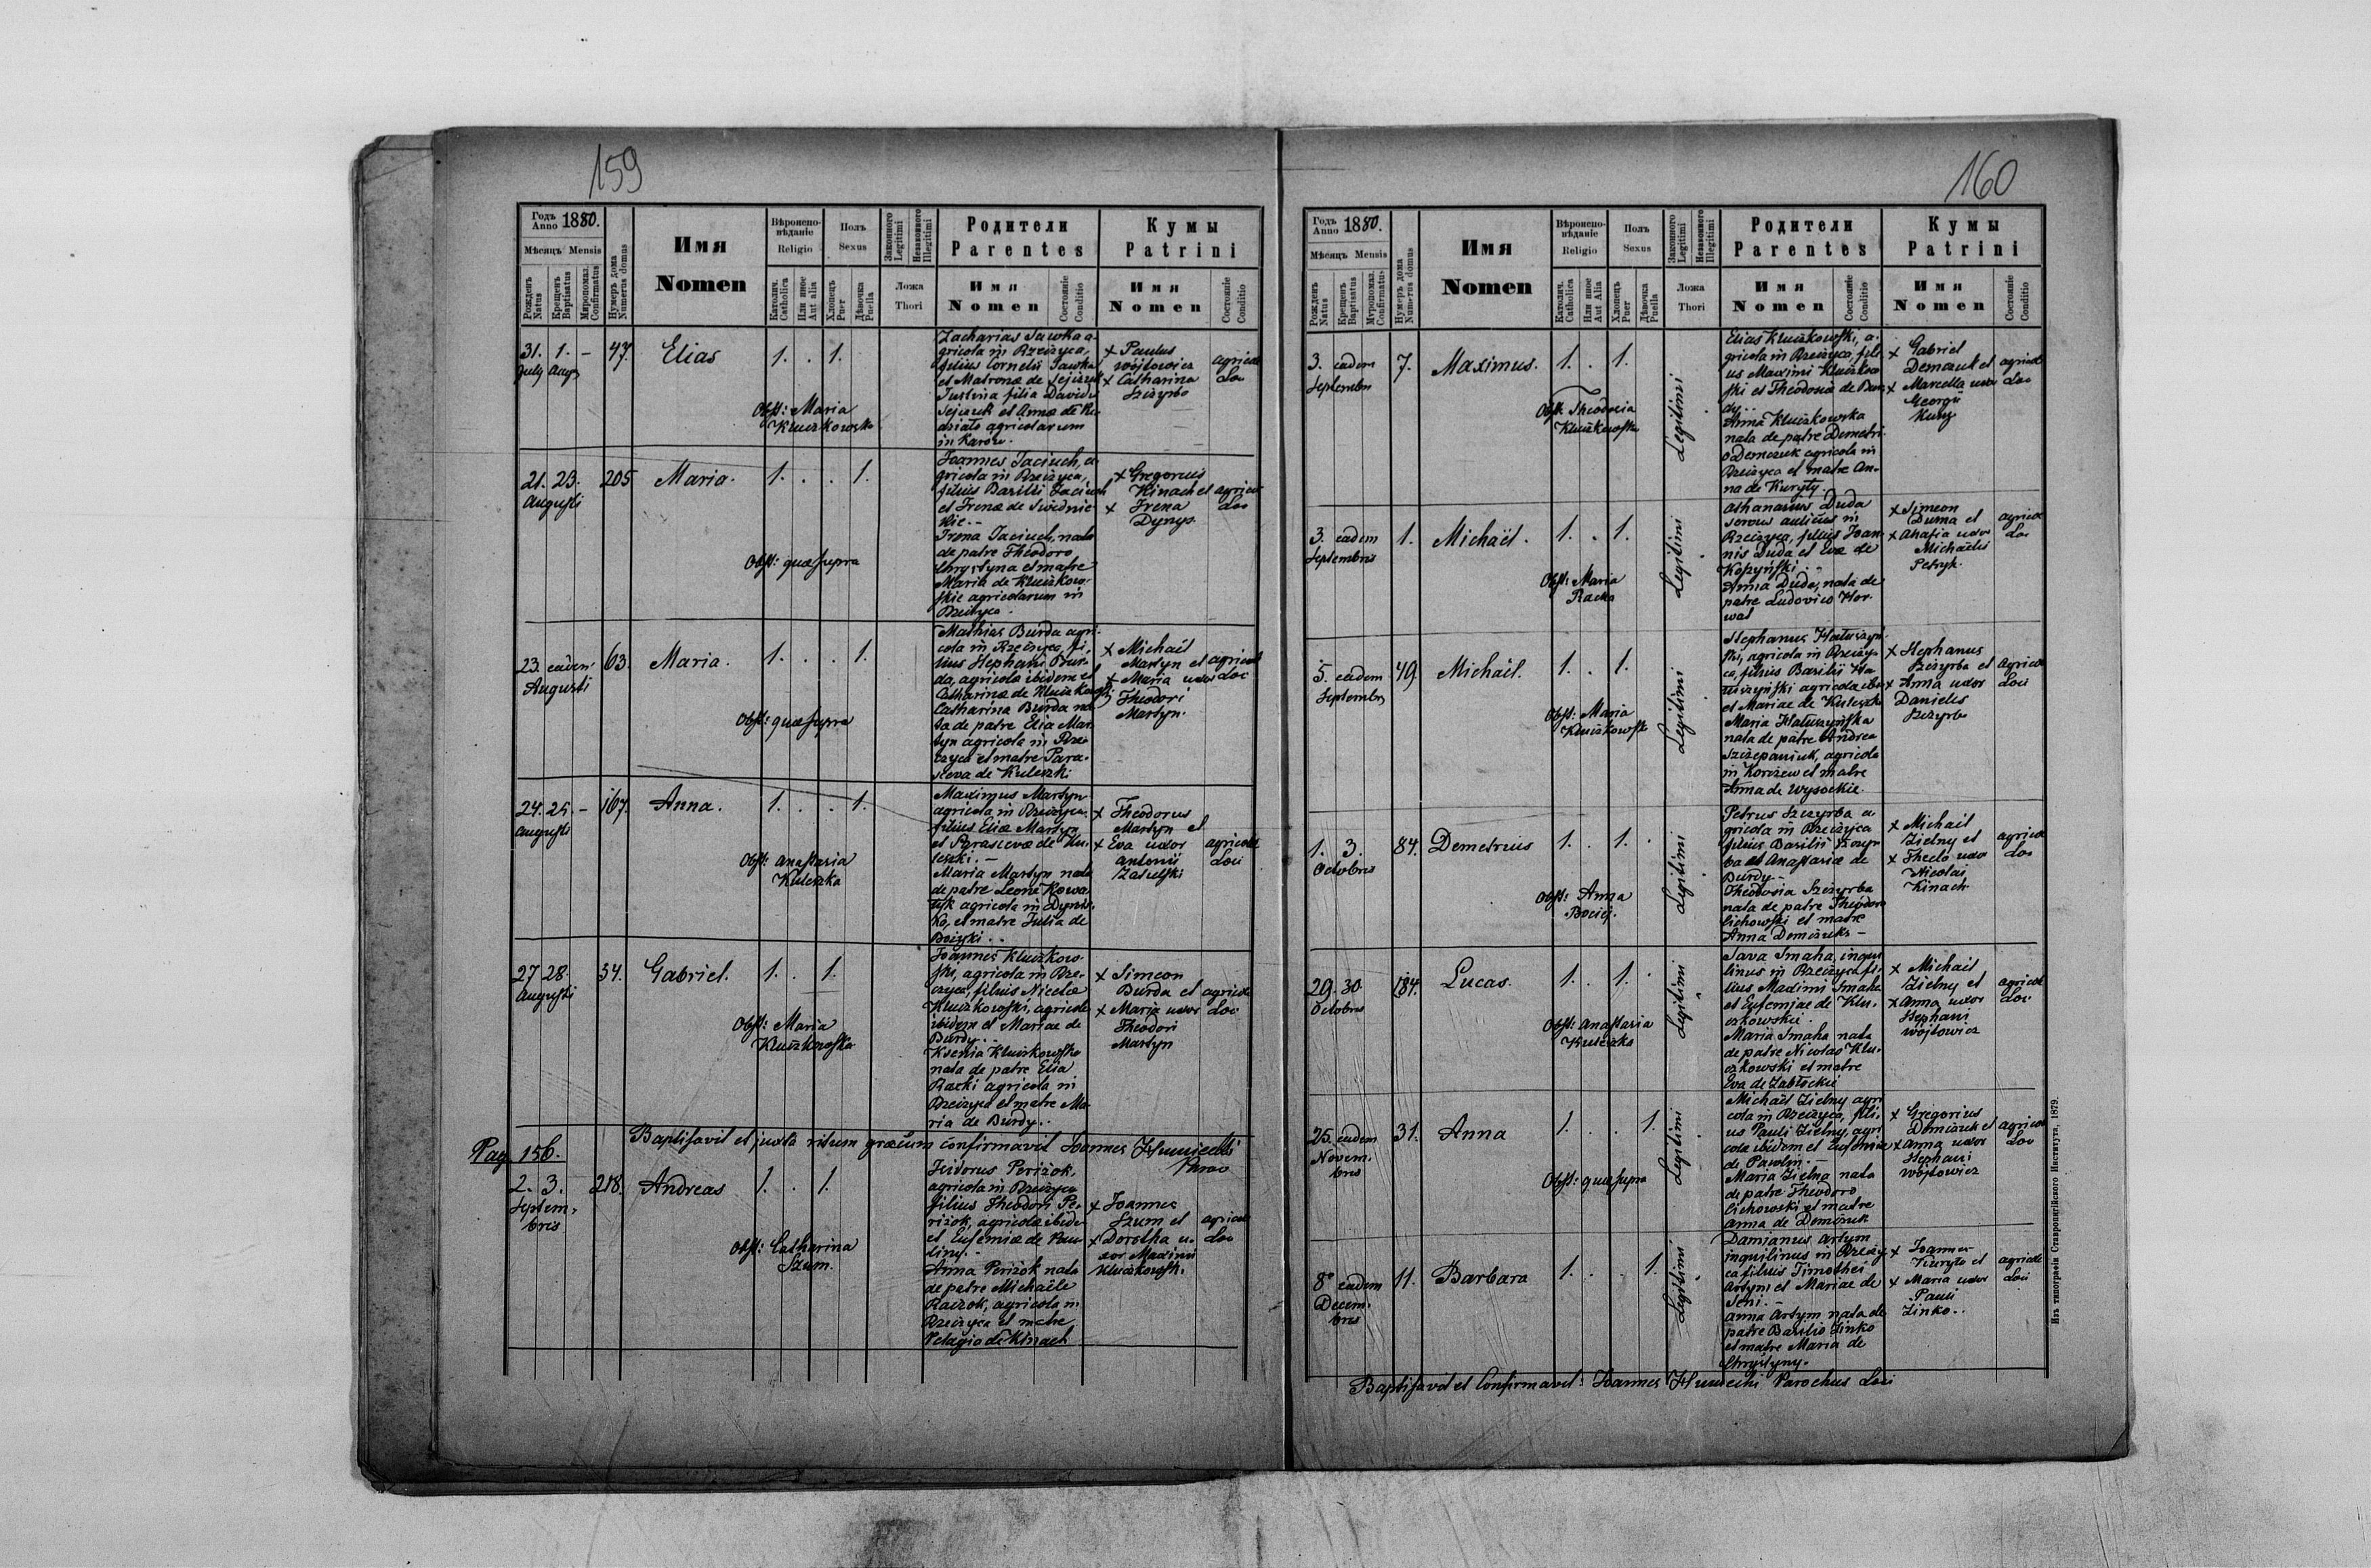 159
Годъ Anno 1880.
Мѣсяцъ Mensis
Рожденъ Natus
Крещенъ Baptisatus
Миропомаз. Confirmatus
Нумеръ дома Numerus domus
Имя
Nomen
Вѣроиспо-
вѣданіе
Religio
Католич. Catholica
Или иное Aut alia
Полъ
Sexus
Хлопецъ Puer
Дѣвочка Puella
Законного Legitimi
Незаконного Illegitimi
Ложа
Thori
Родители
Parentes
Имя
Nomen
Состояніе Conditio
Кумы
Patrini
Имя
Nomen
Состояніе Conditio
31. 1. - 47. Elias 1. . 1.
July Aug
Obst: Maria
Kluczkowska
Zacharias Sawka a-
gricola in Rzeczyca,
filius Cornelii Sawka
et Matronæ de
Justina filia Davidis
et Annæ de
agricolarum
in
+ Paulus
Wojtowicz
+ Catharina
Szczyrba
agricol
Loci
21. 23. 205 Maria. 1. . . 1.
Augusti
Obst: quæ supra
Joannes Jaciuch, a-
gricola in Rzeczyca,
filius Basilii Jaciuch
et Irenæ de Swidnic
kie.-
Irena Jaciuch, nata
de patre Theodoro
Chrystyna et matre
Maria de Kluczkow-
skie agricolarum in
Rzeczyca.
+ Gregorius
Kinach et
+ Irena
Dynys
agricol
Loci
23. eadem 63. Maria. 1. . . 1.
Augusti
Obst: quæ supra
Mathias Burda agri-
cola in Rzeczyca, fi-
lius Stephani Bur-
da, agricola ibidem et
Catharinæ de Kluczkowski
Catharina Burda na-
ta de patre Elia Mar-
tyn agricola in Rze-
czyca et matre Para-
sceva de Kuleszki
+ Michail
Martyn et
+ Maria uxor
Theodori
Martyn.
agricol
Loci
24. 25. - 167. Anna. 1. . . 1.
Augusti
Obst: Anastasia
Kuleszka
Maximus Martyn
agricola in Rzeczyca
filius Eliæ Martyn
et Parascevæ de Ku-
leszki.-
Maria Martyn nata
de patre Leone Kowa-
agricola in Dynis-
ka, et matre Julia de
+ Theodorus
Martyn et
+ Eva uxor
Antonii
Zatulski
agricol
Loci
27 28. 34. Gabriel. 1. . 1.
Augusti
Obst: Maria
Kluczkowska
Joannes Kluczkow-
ski, agricola in Rze-
czyca, filius Nicolai
Kluczkowski, agricola
ibidem et Mariae de
Burdy..
Ksenia Kluczkowska
nata de patre Elia
Racki agricola in
Rzeczyca et matre Ma-
ria de Burdy..
+ Simeon
Burda et
+ Maria uxor
Theodori
Martyn
agricol
Loci
Baptisavit et juxta ritum græcum confirmavit Joannes Humiecki
Paroch
Pag. 156.
2. 3. 218. Andreas 1. . 1.
Septem-
bris
Obst: Catharina
Szum.
Isidorus Periżok,
agricola in Rzeczyca
filius Theodori Pe-
riżok, agricola ibidem
et Eufemiæ de Paw-
liny.-
Anna Periżok nata
de patre Michaële
Raczok, agricola in
Rzeczyca et matre
Pelagia de Kinach
+ Joannes
Szum et
+ Dorotha u-
xor Maximi
Kluczkowski
agricol
Loci
160
Годъ Anno 1880.
Мѣсяцъ Mensis
Рожденъ Natus
Крещенъ Baptisatus
Мѵропомаз. Confirmatus
Нумеръ дома Numerus domus
Имя
Nomen
Вѣроиспо-
вѣданіе
Religio
Католич. Catholica
Или иное Aut Alia
Полъ
Sexus
Хлопецъ Puer
Дѣвочка Puella
Законного Legitimi
Незаконного Illegitimi
Ложа
Thori
Родители
Parentes
Имя
Nomen
Состояніе Conditio
Кумы
Patrini
Имя
Nomen
Состояніе Conditio
3. eadem 7. Maximus. 1. . 1.
Septembris
Obst: Theodosia
Kluczkowska
Legitimi
Elias Kluczkowski, a-
gricola in Rzeczyca, fili-
us Maximi Kluczkow-
ski et Theodosiæ de Bur-
dy..
Anna Kluczkowska
nata de patre Demetri-
o Demczuk agricola in
Rzeczyca et matre An-
na de Kuryły.
+ Gabriel
Demczuk et
+ Marcella uxor
Georgii
Kunz
agricol
Loci
3. eadem 1. Michaël. 1. . 1.
Septembris
Obst: Maria
Racka
Legitimi
Athanasius Duda
servus aulicus in
Rzeczyca, filius Joan-
nis Duda et Evæ de
Kopzyński..
Anna Duda, nata de
patre Ludovico Hor-
wat
+ Simeon
Duma et
+ Ahafia uxor
Michaëlis
Petryk.
agricol
Loci
5. eadem 49. Michaël. 1. . 1.
Septembris
Obst: Maria
Kluczkowska
Legitimi
Stephanus Hałuszyń-
ski, agricola in Rzeczy-
ca, filius Basilii Ha-
łuszyński agricola ibid
et Mariae de Kuleszki
Maria Hałuszyńska
nata de patre Andrea
Szczepaniuk, agricola
in Korczew et matre
Anna de Wysockie.
+ Stephanus
Szczyrba et
+ Anna uxor
Danielis
Szczyrba
agricol
Loci
1. 3. 84. Demetrius 1. . 1.
Octobris
Obst: Anna
Bociej.
Legitimi
Petrus Szczyrba a-
gricola in Rzeczyca
filius Basilii Szczyr-
ba et Anastasiæ de
Burdy.-
Theodosia Szczyrba
nata de patre Theodoro
Cichowski et matre
Anna Demczuk -
+ Michail
Zielny et
+ Thecla uxor
Nicolai
Kinach
agricol
Loci
29. 30. 184. Lucas. 1. . 1.
Octobris
Obst: Anastasia
Kuleszka
Legitimi
Sava Smaha, inqui-
linus in Rzeczyca, fi-
lius Maximi Smaha
et Eufemiae de Klu-
czkowskie.
Maria Smaha nata
de patre Nicolao Klu-
czkowski et matre
Eva de Zabłockie
+ Michail
Zielny et
+ Anna uxor
Stephani
Wojtowicz
agricol
Loci
25. eadem 31. Anna 1. . . 1.
Novem-
bris
Obst: quæ supra
Legitimi
Michaël Zielny agri-
cola in Rzeczyca, fili-
us Pauli Zielny, agri-
cola ibidem et Eufemiæ
de Pawlin.-
Maria Zielna nata
de patre Theodoro
Cichowski et matre
Anna de Demczuk
+ Gregorius
Demczuk et
+ Anna uxor
Stephani
Wojtowicz
agricol
Loci
8. eadem 11. Barbara 1. . . 1.
Decem-
bris
Legitimi
Damianus Artym
inquilinus in Rzeczy-
ca filius Timothei
Artym et Mariae de
Seni.-
Anna Artym nata de
patre Basilio Zinko
et matre Maria de
Chrystyny.
+ Joannes
Kuryło et
+ Maria uxor
Pauli
Zinko..
agricol
Loci
Baptisavit et Confirmavit Joannes Humiecki Parochus Loci
Изъ типографіи Ставропигійского Института, 1879.